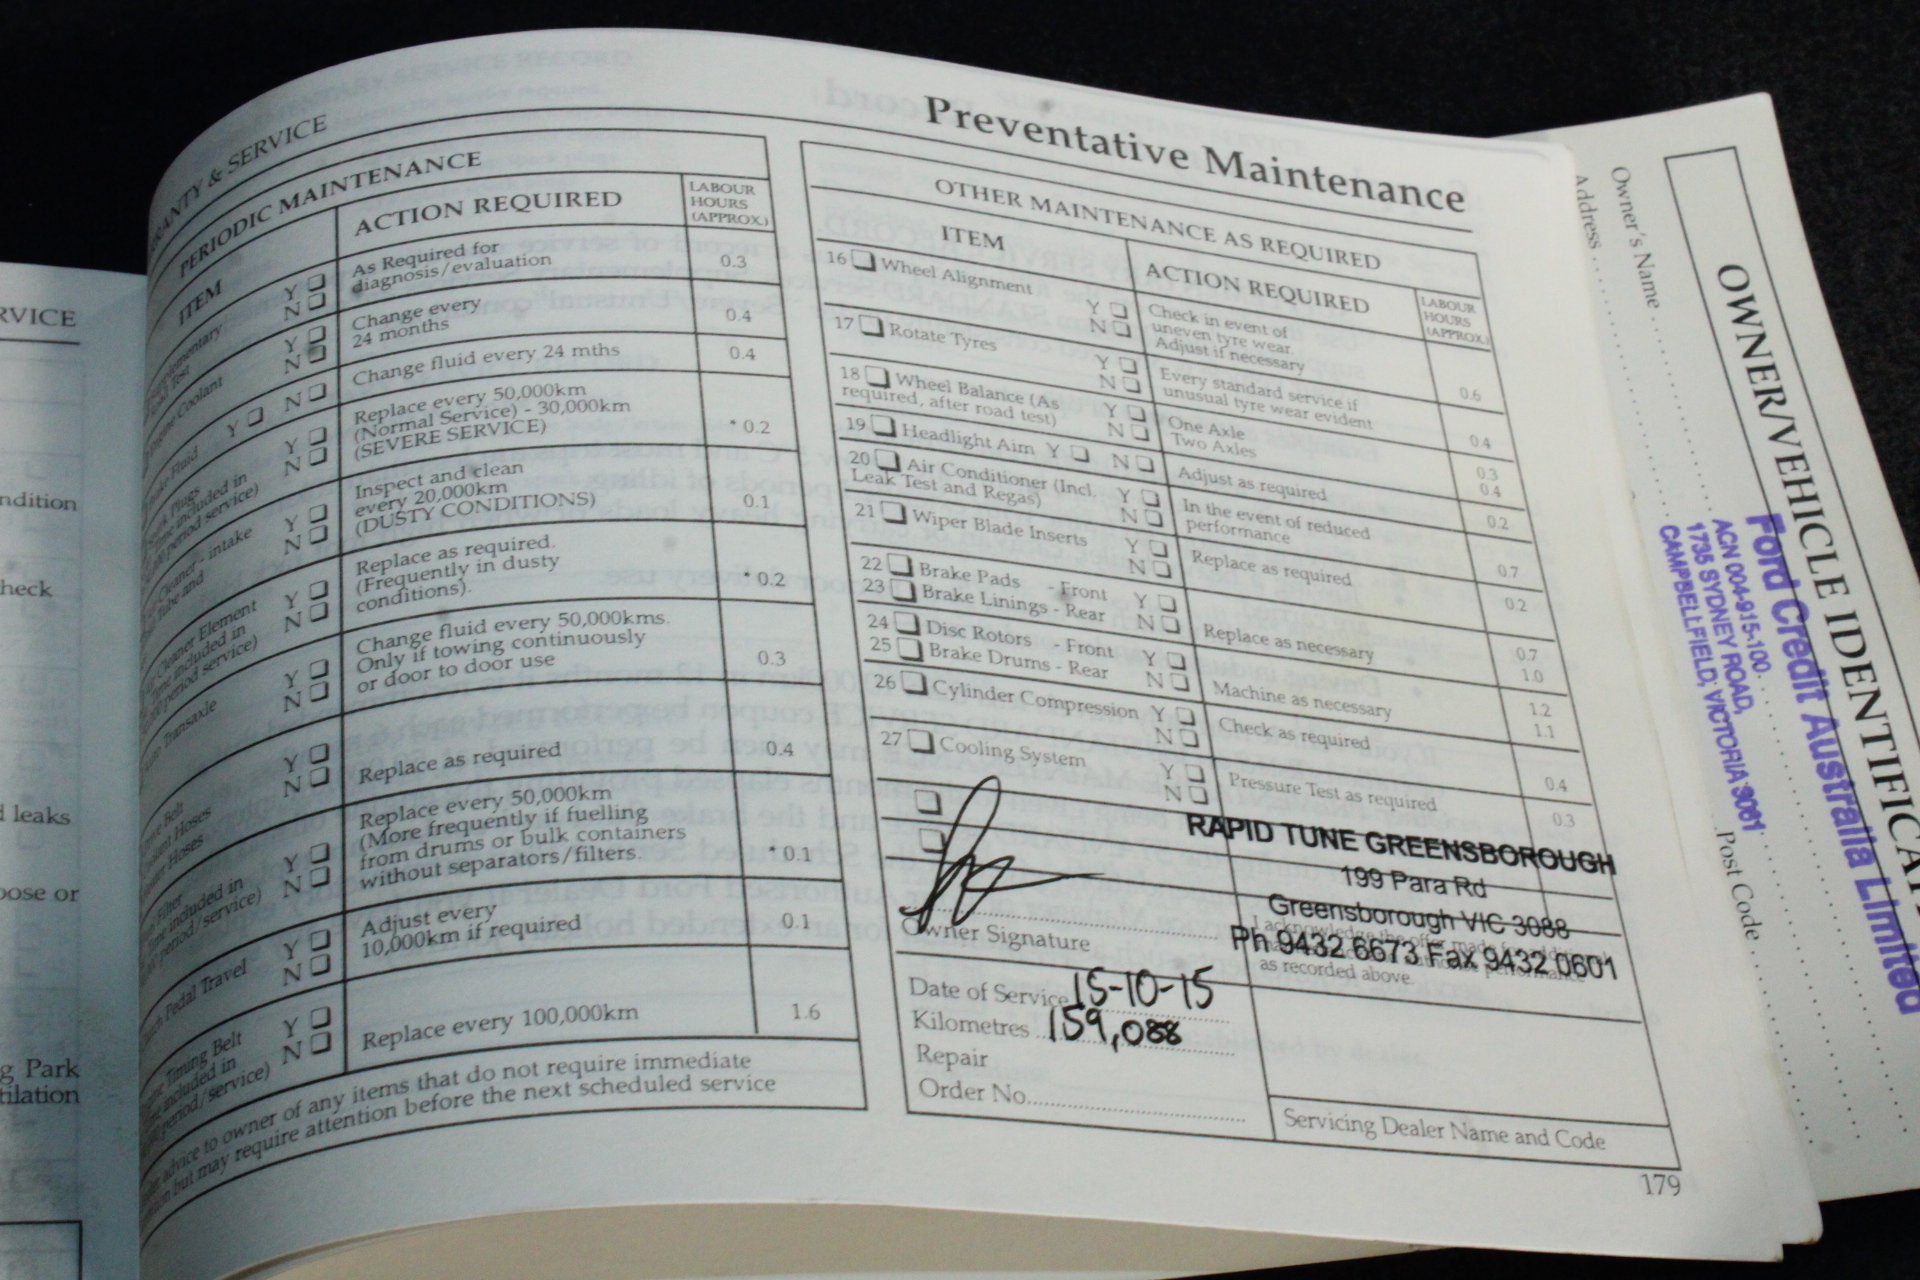 RVICE
ndition
heck
d leaks
oose or
g Park
tilation
& SERVICE
Preventative Maintenance
PERIODIC MAINTENANCE
ITEM
ACTION REQUIRED
LABOUR
HOURS
(APPROX.)
Y N
As Required for
diagnosis/evaluation
0.3
Coolant
Y N
Change every
24 months
0.4
Fluid
Y N
Change fluid every 24 mths
0.4
Plugs
included in
period service)
Y N
Replace every 50,000km
(Normal Service) - 30,000km
(SEVERE SERVICE)
* 0.2
Cleaner - intake
Tube and
Y N
Inspect and clean
every 20,000km
(DUSTY CONDITIONS)
0.1
Cleaner Element
included in
period service)
Y N
Replace as required.
(Frequently in dusty
conditions).
* 0.2
Transaxle
Y N
Change fluid every 50,000kms.
Only if towing continuously
or door to door use
0.3
Belt
Hoses
Hoses
Y N
Replace as required
0.4
Filter
included in
period/service)
Y N
Replace every 50,000km
(More frequently if fuelling
from drums or bulk containers
without separators/filters.
* 0.1
Pedal Travel
Y N
Adjust every
10,000km if required
0.1
Timing Belt
included in
period/service)
Y N
Replace every 100,000km
1.6
advice to owner of any items that do not require immediate
but may require attention before the next scheduled service
OTHER MAINTENANCE AS REQUIRED
ITEM
ACTION REQUIRED
LABOUR
HOURS
(APPROX.)
16 Wheel Alignment
Y N
Check in event of
uneven tyre wear.
Adjust if necessary
0.6
17 Rotate Tyres
Y N
Every standard service if
unusual tyre wear evident
0.4
18 Wheel Balance (As
required, after road test)
Y N
One Axle
Two Axles
0.3
0.4
19 Headlight Aim Y N
Adjust as required
0.2
20 Air Conditioner (Incl.
Leak Test and Regas)
Y N
In the event of reduced
performance
0.7
21 Wiper Blade Inserts
Y N
Replace as required
0.2
22 Brake Pads - Front
23 Brake Linings - Rear
Y N
Replace as necessary
0.7
1.0
24 Disc Rotors - Front
25 Brake Drums - Rear
Y N
Machine as necessary
1.2
1.1
26 Cylinder Compression
Y N
Check as required
0.4
27 Cooling System
Y N
Pressure Test as required
0.3
RAPID TUNE GREENSBOROUGH
199 Para Rd
Greensborough VIC 3088
Ph 9432 6673 Fax 9432 0601
I acknowledge the offer made for additional
as recorded above.
Owner Signature
Date of Service 15-10-15
Kilometres 159,088
Repair
Order No.
Servicing Dealer Name and Code
179
OWNER/VEHICLE IDENTIFICA
Owner's Name
Address
Ford Credit Australia Limited
ACN 004-915-100
1735 SYDNEY ROAD,
CAMPBELLFIELD, VICTORIA 3061
Post Code